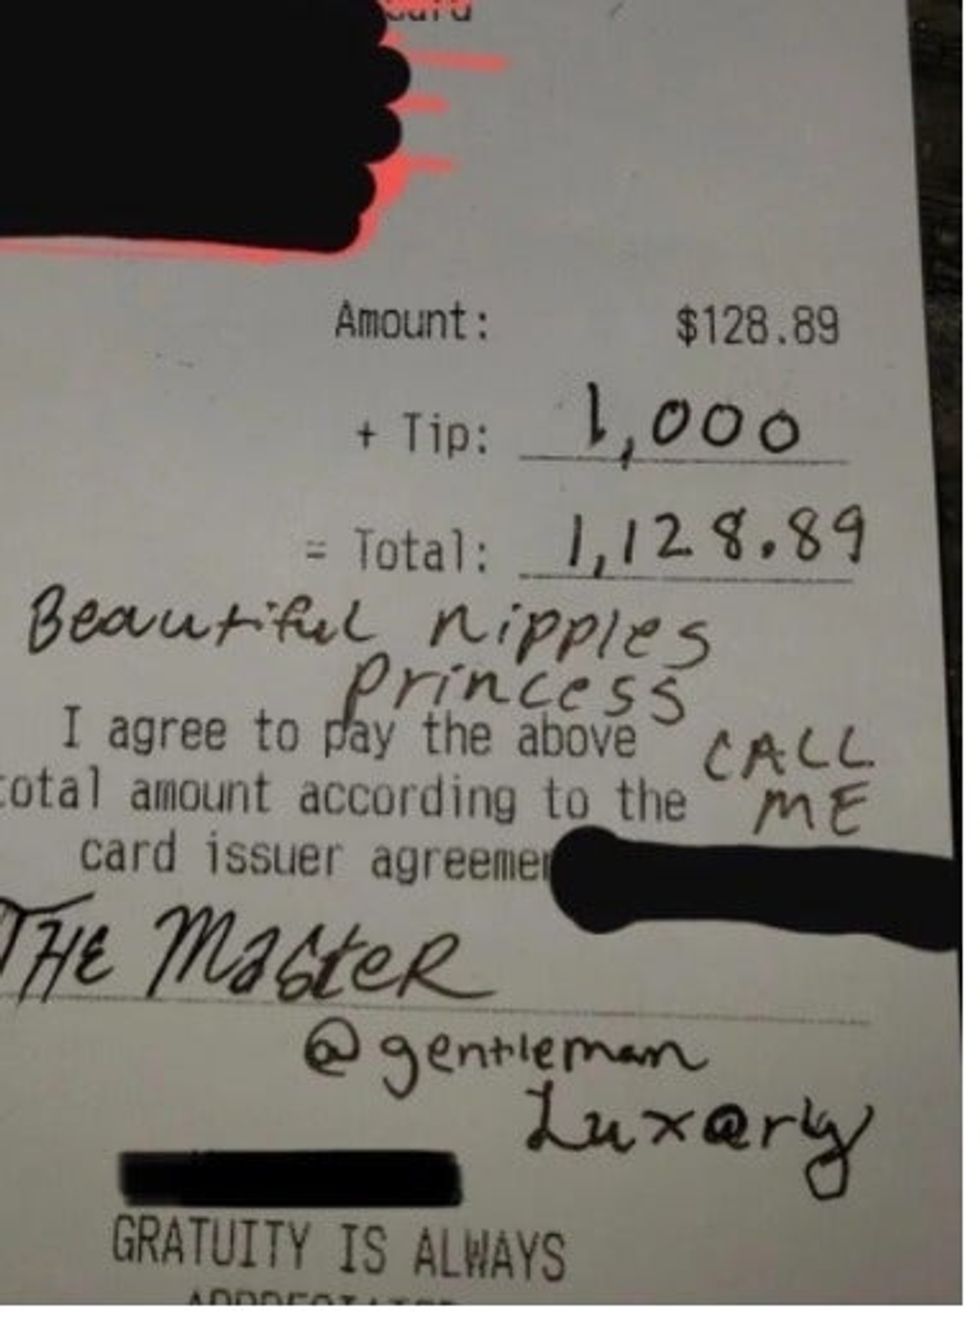 Card
Amount: $128.89
+ Tip: 1,000
= Total: 1,128.89
Beautiful nipples
princess
I agree to pay the above
CALL
total amount according to the
ME
card issuer agreemen
THE MasteR
@gentleman
Luxary
GRATUITY IS ALWAYS
APPRECIATED